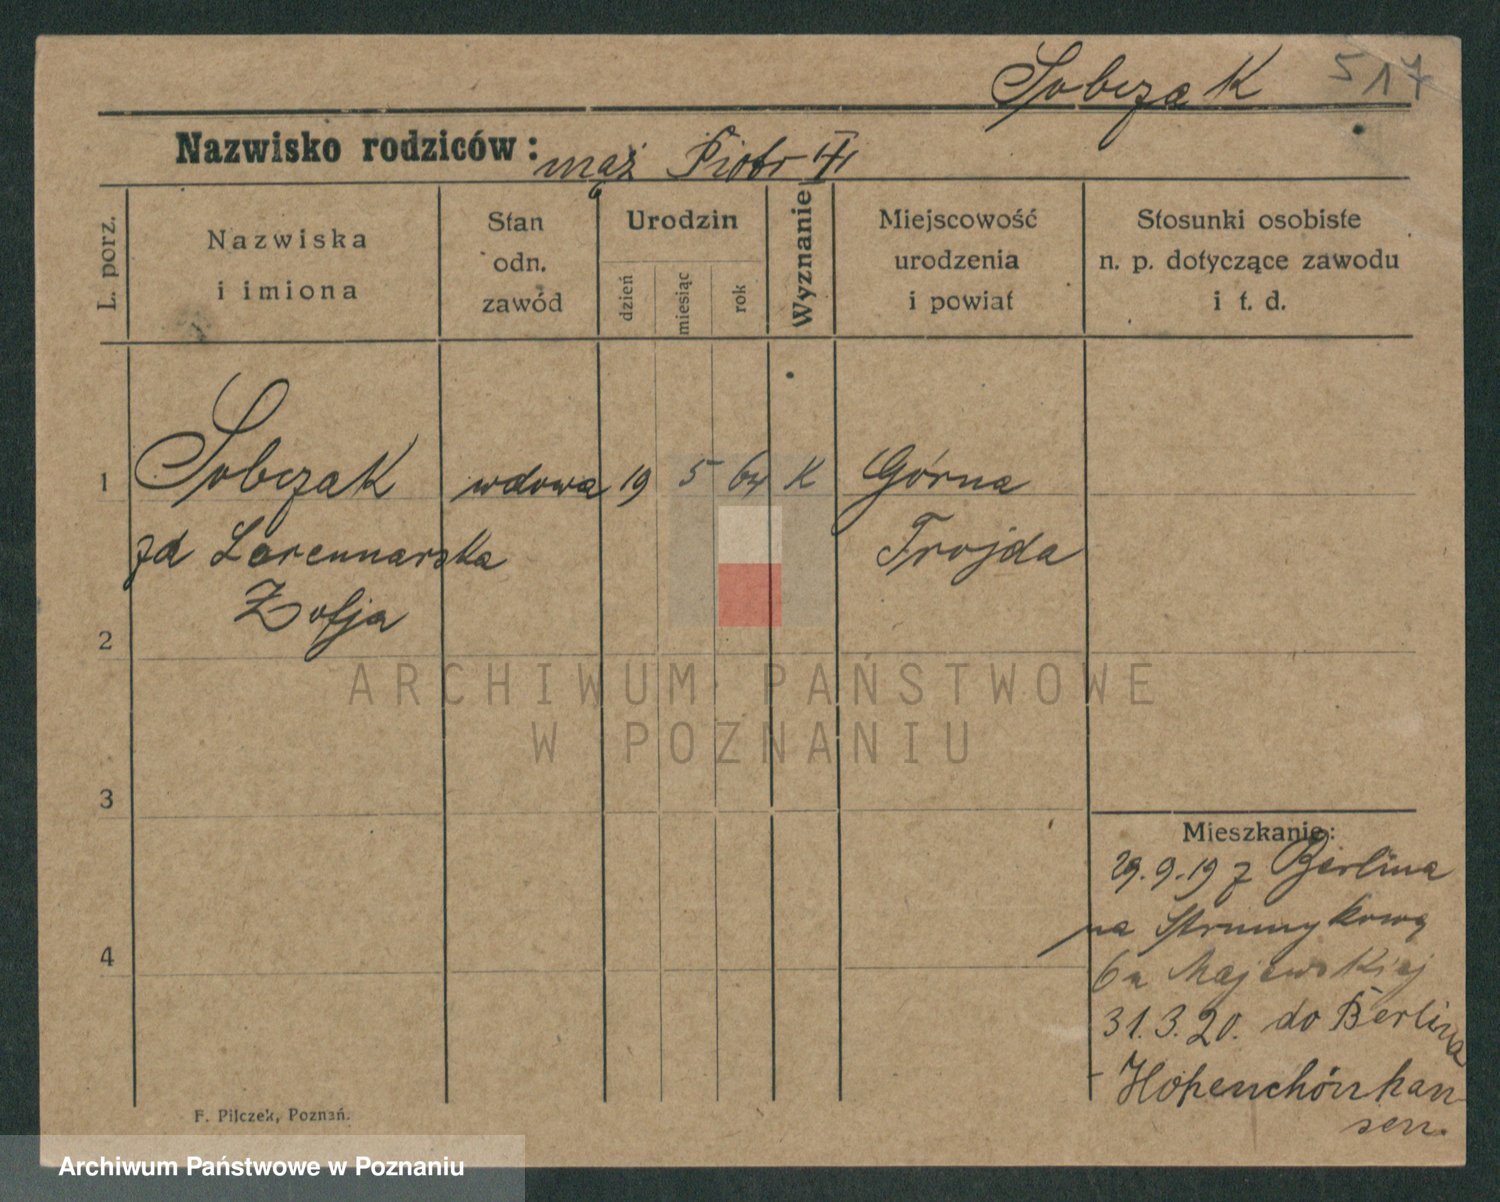 Sobczak 517
Nazwisko rodziców: mąż Piotr
L. porz.
Nazwiska
i imiona
Stan
odn.
zawód
Urodzin
dzień
miesiąc
rok
Wyznanie
Miejscowość
urodzenia
i powiat
Stosunki osobiste
n. p. dotyczące zawodu
i t. d.
1 Sobczak wdowa 19 5 64 K Górna
zd Lorennarska Trojda
Zofja
2
ARCHIWUM PAŃSTWOWE
W POZNANIU
3
Mieszkanie:
29.9.19 z Berlina
na Strumykową
6 u Majewskiej
4
31.3.20. do Berlina
- Hohenchönhau
sen.
F. Pilczek, Poznań.
Archiwum Państwowe w Poznaniu